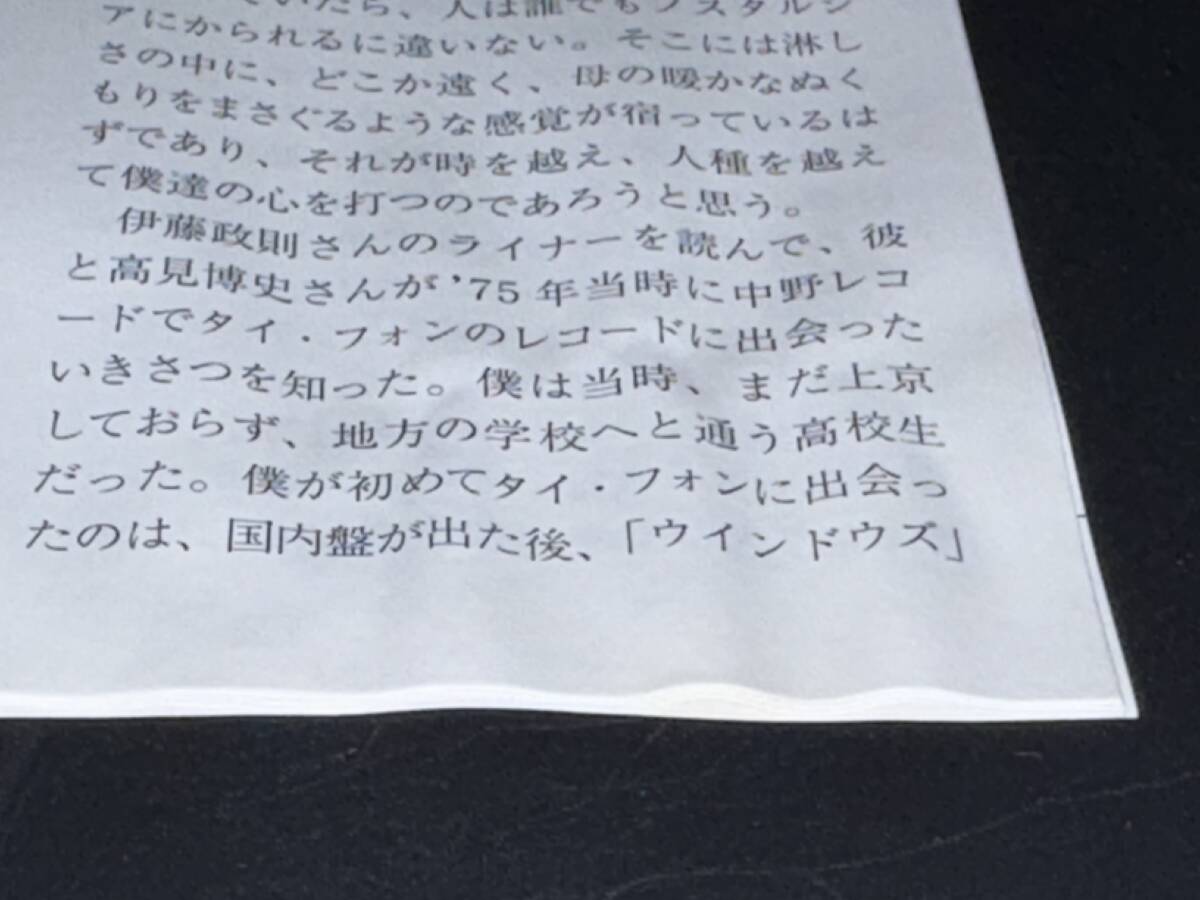 いたら、人は誰でもノスタルジ
アにかられるに違いない。そこには淋し
さの中に、どこか遠く、母の暖かなぬく
もりをまさぐるような感覚が宿っているは
ずであり、それが時を越え、人種を越え
て僕達の心を打つのであろうと思う。
伊藤政則さんのライナーを読んで、彼
と高見博史さんが'75年当時に中野レコ
ードでタイ・フォンのレコードに出会った
いきさつを知った。僕は当時、まだ上京
しておらず、地方の学校へと通う高校生
だった。僕が初めてタイ・フォンに出会っ
たのは、国内盤が出た後、「ウインドウズ」